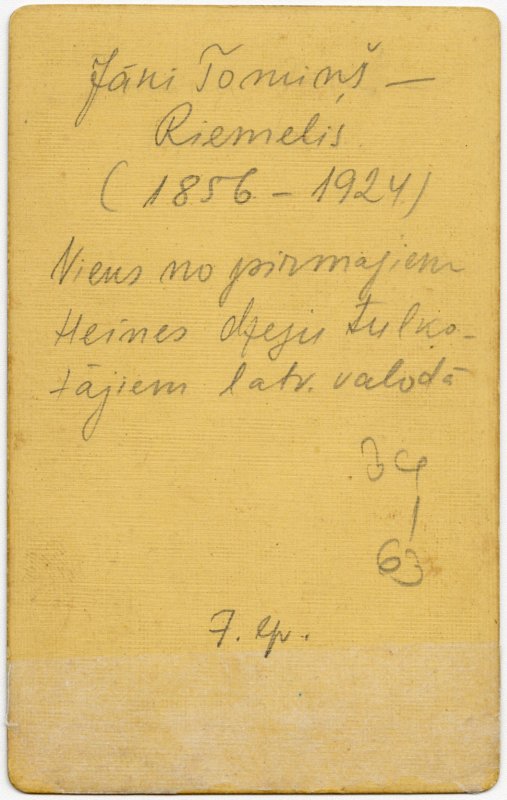 Jāni Tomiņš —
Riemelis
(1856 – 1924)
Viens no pirmajiem
Heines dzeju tulko-
tājiem latv. valodā
34
/
63
7. ep.